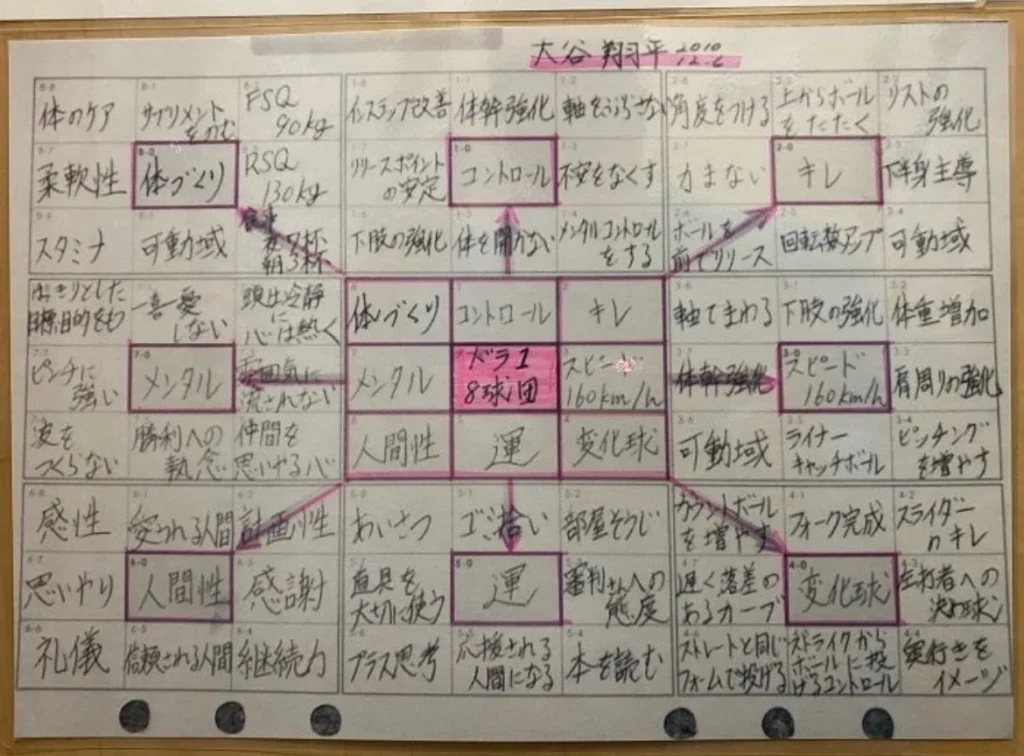 大谷 翔平 2010 12.6
体のケア
サプリメントをのむ
FSQ
90kg
柔軟性
体づくり
RSQ
130kg
スタミナ
可動域
食事
夜7杯
朝3杯
インステップ改善
体幹強化
軸をぶらさない
リリースポイント
の安定
コントロール
不安をなくす
下肢の強化
体を開かない
メンタルコントロール
をする
角度をつける
上からボール
をたたく
リストの
強化
力まない
キレ
下半身主導
ボールを
前でリリース
回転数アップ
可動域
はっきりとした
目標、目的をもつ
一喜一憂
しない
頭は冷静に
心は熱く
ピンチに
強い
メンタル
雰囲気に
流されない
波を
つくらない
勝利への
執念
仲間を
思いやる心
体づくり
コントロール
キレ
メンタル
ドラ1
8球団
スピード
160km/h
人間性
運
変化球
軸でまわる
下肢の強化
体重増加
体幹強化
スピード
160km/h
肩周りの強化
可動域
ライナー
キャッチボール
ピッチング
を増やす
感性
愛される人間
計画性
思いやり
人間性
感謝
礼儀
信頼される人間
継続力
あいさつ
ゴミ拾い
部屋そうじ
道具を
大切に使う
運
審判さんへの
態度
プラス思考
応援される
人間になる
本を読む
カウントボール
を増やす
フォーク完成
スライダー
のキレ
遅く落差の
あるカーブ
変化球
左打者への
決め球
ストレートと同じ
フォームで投げる
ストライクから
ボールに投
げるコントロール
奥行きを
イメージ